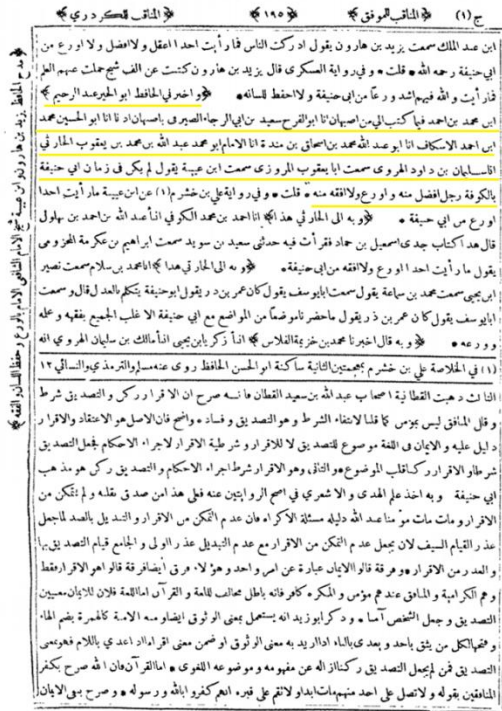 ج (١) ﴿المناقب للموفق﴾ ﴿١٩٥﴾ ﴿المناقب للكردري﴾
ابن عبد الملك سمعت يزيد بن هارون يقول ادركت الناس فما رأيت احدا اعقل ولا افضل ولا اورع من
ابي حنيفة رحمه الله • قلت • وفي رواية العسكري قال يزيد بن هارون كتبت عن الف شيخ حملت عنهم العلم
فما رأيت والله فيهم اشد ورعا من ابي حنيفة ولا احفظ للسانه • ﴿واخبرني الحافظ ابو الخير عبد الرحيم﴾
ابن محمد بن احمد فيما كتب الي من اصبهان انا ابو الفرح سعيد بن ابي الرجاء الصيرفي باصبهان انا ابو الحسين محمد
ابن احمد الاسكاف انا ابو عبد الله محمد بن اسحاق بن مندة انا الامام ابو محمد عبد الله بن محمد بن يعقوب الحارثي
انا سليمان بن داود الهروي سمعت ابا يعقوب المروزي سمعت ابن عيينة يقول لم يكن في زمان ابي حنيفة
بالكوفة رجل افضل منه واورع ولا افقه منه • قلت • وفي رواية علي بن خشرم (١) عن ابن عيينة ما رأيت احدا
اورع من ابي حنيفة • ﴿وبه الى الحارثي هذا﴾ انا احمد بن محمد الكوفي انبأ عبد الله بن احمد بن بهلول
قال هذا كتاب جدي اسمعيل بن حماد فقرأت فيه حدثني سعيد بن سويد سمعت ابراهيم بن عكرمة المخزومي
يقول ما رأيت احدا اورع ولا افقه من ابي حنيفة • ﴿وبه الى الحارثي هذا﴾ انا محمد بن سلام سمعت نصير
ابن يحيى سمعت محمد بن سماعة يقول سمعت ابا يوسف يقول كان عمر بن ذر يقول ابو حنيفة يتكلم بالعدل قال وسمعت
ابا يوسف يقول كان عمر بن ذر يقول ما حضرنا موضعا من المواضع مع ابي حنيفة الا غلب الجميع بفقهه وعلمه
وورعه • ﴿وبه قال اخبرنا محمد بن خزيمة القلاس﴾ انبأ زكريا بن يحيى انبأ مالك بن سليمان الهروي انه
(١) في الخلاصة علي بن خشرم بمعجمتين الثانية ساكنة ابو الحسن الحافظ روى عنه مسلم والترمذي والنسائي ١٢
الثالث ذهبت القطانية اصحاب عبد الله بن سعيد القطان فانه صرح ان الاقرار ركن والتصديق شرط
وقال المنافق ليس بمؤمن كما قلنا لانتفاء الشرط وهو التصديق وفساده واضح فان الاصل هو الاعتقاد والاقرار
دليل عليه والايمان في اللغة موضوع للتصديق لا للاقرار وشرطية الاقرار لاجراء الاحكام فجعل التصديق
شرطا والاقرار ركنا قلب الموضوع • والثاني وهو الاقرار شرط اجراء الاحكام والتصديق ركن هو مذهب
ابي حنيفة وبه اخذ علم الهدى والاشعري في اصح الروايتين عنه فعلى هذا من صدق بقلبه ولم يتمكن من
الاقرار ومات مات مؤمنا عند الله دليله مسئلة الاكراه فان عدم التمكن من الاقرار والتبديل بالضد لما جعل
عذر القيام السيف لان يجعل عدم التمكن من الاقرار مع عدم التبديل عذرا اولى والجامع قيام التصديق بها
والعذر من الاقرار • وفرقة قالوا الايمان عبارة عن امر واحد وهؤلاء فرق ايضا فرقة قالوا هو الاقرار فقط
وهم الكرامية والمنافق عندهم مؤمن والمكره كافر فانه باطل مخالف للغة والقرآن اما اللغة فلان للايمان معنيين
التصديق وجعل الشخص آمنا • وذكر ابو زيد انه يستعمل بمعنى الوثوق ايضا ومنه الامنة كالهمزة بضم الهاء
وفتحها لكل من يثق باحد ويعدى بالباء اذا اريد به معنى الوثوق او ضمن معنى اقر اذا اعدي باللام فهو بمعنى
التصديق فمن لم يجعل التصديق ركنا ازاله عن مفهومه وموضوعه اللغوي • اما القرآن فان الله صرح بكفر
المنافقين بقوله ولا تصل على احد منهم مات ابدا ولا تقم على قبره انهم كفروا بالله ورسوله • وصرح بنفي الايمان
﴿مدح الحافظ يزيد بن هارون وابن عيينة شيخ الامام الشافعي الامام بالورع وحفظ اللسان والفقه﴾